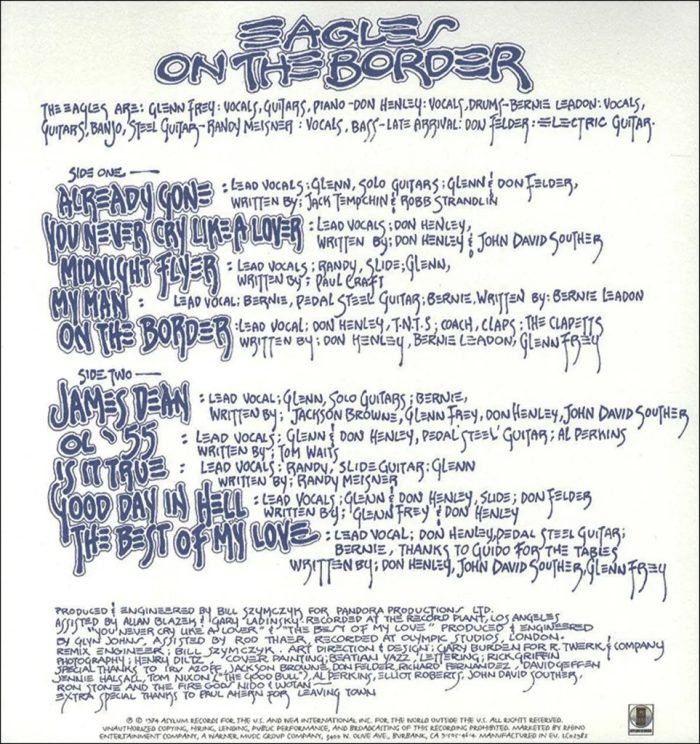 EAGLES
ON THE BORDER
THE EAGLES ARE: GLENN FREY: VOCALS, GUITARS, PIANO - DON HENLEY: VOCALS, DRUMS - BERNIE LEADON: VOCALS,
GUITARS, BANJO, STEEL GUITAR - RANDY MEISNER: VOCALS, BASS - LATE ARRIVAL: DON FELDER: ELECTRIC GUITAR.
SIDE ONE —
ALREADY GONE : LEAD VOCALS; GLENN, SOLO GUITARS; GLENN & DON FELDER,
WRITTEN BY; JACK TEMPCHIN & ROBB STRANDLIN
YOU NEVER CRY LIKE A LOVER : LEAD VOCALS; DON HENLEY,
WRITTEN BY; DON HENLEY & JOHN DAVID SOUTHER
MIDNIGHT FLYER : LEAD VOCALS; RANDY, SLIDE; GLENN,
WRITTEN BY; PAUL CRAFT
MY MAN : LEAD VOCAL; BERNIE, PEDAL STEEL GUITAR; BERNIE, WRITTEN BY: BERNIE LEADON
ON THE BORDER : LEAD VOCAL; DON HENLEY, T.N.T.S; COACH, CLAPS; THE CLAPETTS
WRITTEN BY; DON HENLEY, BERNIE LEADON, GLENN FREY
SIDE TWO —
JAMES DEAN : LEAD VOCAL; GLENN, SOLO GUITARS; BERNIE,
WRITTEN BY; JACKSON BROWNE, GLENN FREY, DON HENLEY, JOHN DAVID SOUTHER
OL '55 : LEAD VOCALS; GLENN & DON HENLEY, PEDAL STEEL GUITAR; AL PERKINS
WRITTEN BY; TOM WAITS
IS IT TRUE : LEAD VOCALS; RANDY, SLIDE GUITAR; GLENN
WRITTEN BY; RANDY MEISNER
GOOD DAY IN HELL : LEAD VOCALS; GLENN & DON HENLEY, SLIDE; DON FELDER
WRITTEN BY; GLENN FREY & DON HENLEY
THE BEST OF MY LOVE : LEAD VOCAL; DON HENLEY, PEDAL STEEL GUITAR;
BERNIE, THANKS TO GUIDO FOR THE TABLES
WRITTEN BY; DON HENLEY, JOHN DAVID SOUTHER, GLENN FREY
PRODUCED & ENGINEERED BY BILL SZYMCZYK FOR PANDORA PRODUCTIONS LTD.
ASSISTED BY ALLAN BLAZEK & GARY LADINSKY RECORDED AT THE RECORD PLANT, LOS ANGELES
"YOU NEVER CRY LIKE A LOVER" & "THE BEST OF MY LOVE" PRODUCED & ENGINEERED
BY GLYN JOHNS, ASSISTED BY ROD THAER, RECORDED AT OLYMPIC STUDIOS, LONDON.
REMIX ENGINEER; BILL SZYMCZYK. ART DIRECTION & DESIGN; GARY BURDEN FOR R. TWERK & COMPANY
PHOTOGRAPHY; HENRY DILTZ, COVER PAINTING; BEATIAN YAZZ, LETTERING; RICK GRIFFIN
SPECIAL THANKS TO IRV AZOFF, JACKSON BROWNE, DON FELDER, RICHARD FERNANDEZ, DAVID GEFFEN
JENNIE HALSALL, TOM NIXON ("THE GOOD BULL"), AL PERKINS, ELLIOT ROBERTS, JOHN DAVID SOUTHER,
RON STONE AND THE FIRE GODS NIDO & WOTAN —
EXTRA SPECIAL THANKS TO PAUL AHERN FOR LEAVING TOWN
℗ © 1974 ASYLUM RECORDS FOR THE U.S. AND WEA INTERNATIONAL INC. FOR THE WORLD OUTSIDE THE U.S. ALL RIGHTS RESERVED.
UNAUTHORIZED COPYING, HIRING, LENDING, PUBLIC PERFORMANCE, AND BROADCASTING OF THIS RECORDING PROHIBITED. MARKETED BY RHINO
ENTERTAINMENT COMPANY, A WARNER MUSIC GROUP COMPANY, 3400 W. OLIVE AVE., BURBANK, CA MANUFACTURED IN EU.